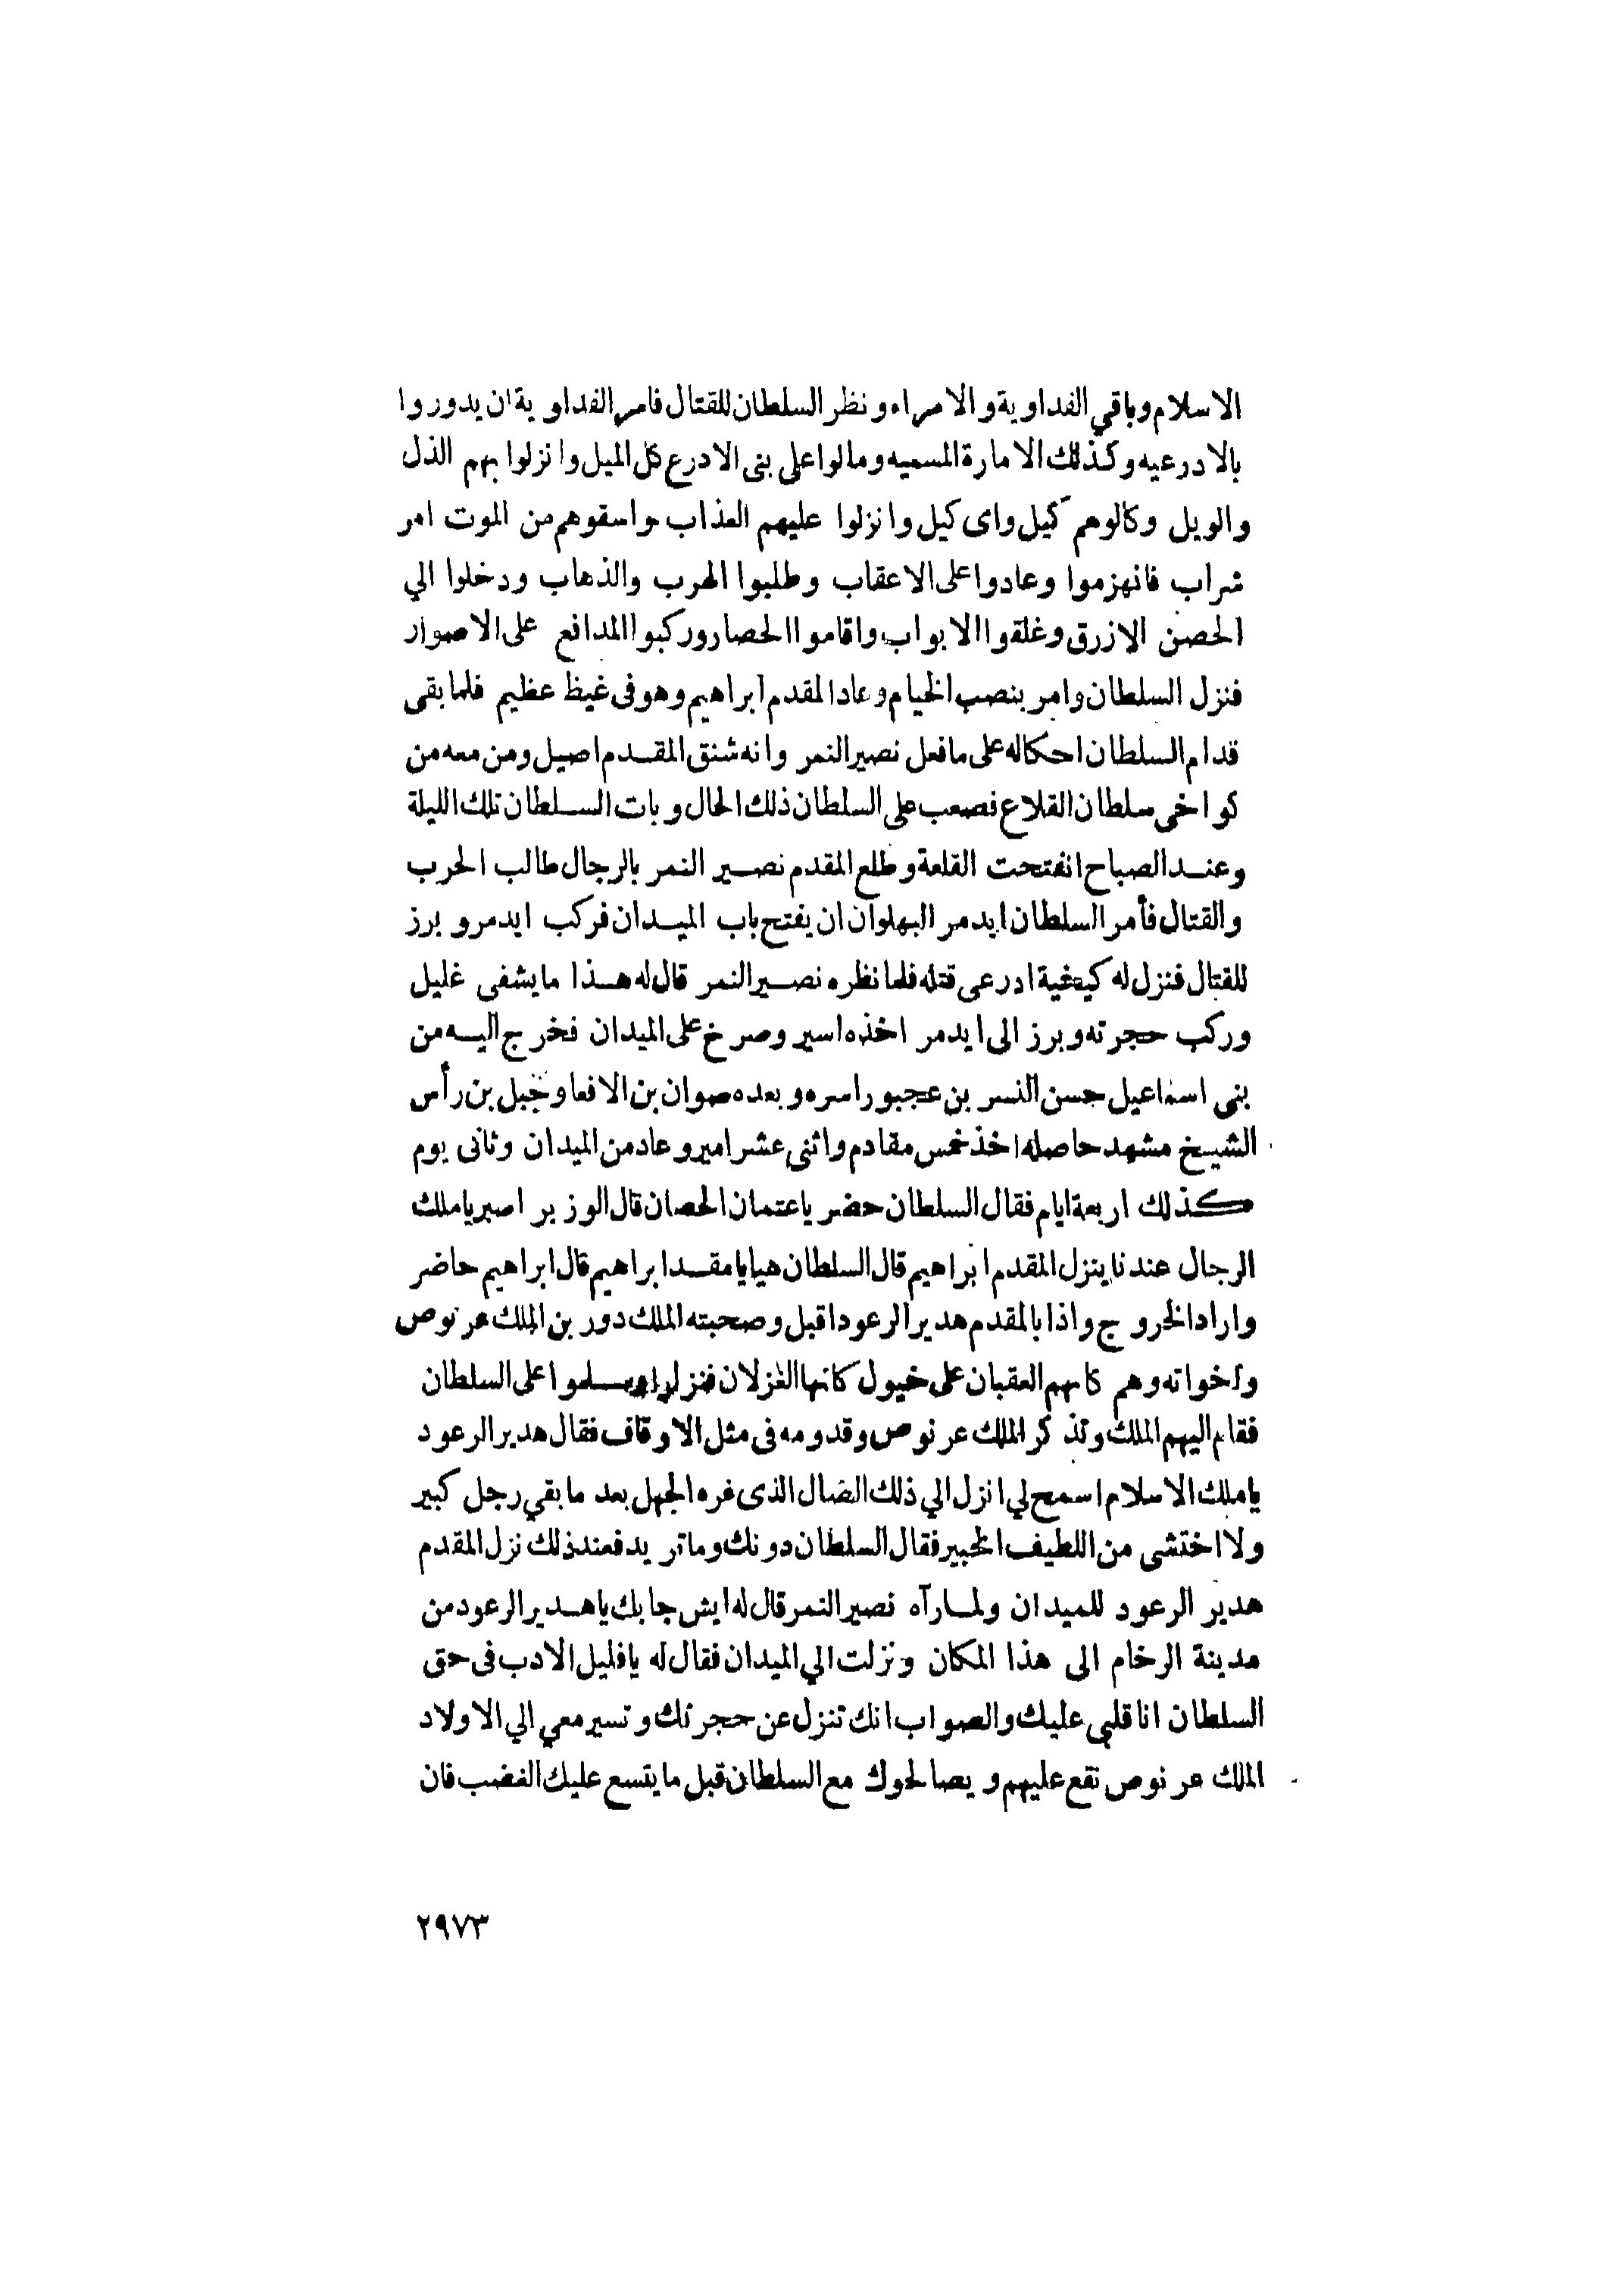 الاسلام وباقي الفداوية والامراء ونظر السلطان للقتال فامر الفداوية ان يدوروا
بالادرعيه وكذلك الامارة المسميه ومالوا على بنى الادرع كل الميل وانزلوا بهم الذل
والويل وكالوهم كيل واى كيل وانزلوا عليهم العذاب واسقوهم من الموت امر
شراب فانهزموا وعادوا على الاعقاب وطلبوا الهرب والذهاب ودخلوا الي
الحصن الازرق وغلقوا الابواب واقاموا الحصار وركبوا المدافع على الاصوار
فنزل السلطان وامر بنصب الخيام وعاد المقدم ابراهيم وهو فى غيظ عظيم فلما بقى
قدام السلطان احكاله على مافعل نصير النمر وانه شنق المقدم اصيل ومن معه من
كواخى سلطان القلاع فصعب على السلطان ذلك الحال وبات السلطان تلك الليلة
وعند الصباح انفتحت القلعة وطلع المقدم نصير النمر بالرجال طالب الحرب
والقتال فأمر السلطان ايدمر البهلوان ان يفتح باب الميدان فركب ايدمر و برز
للقتال فنزل له كيخية ادرعى قتله فلما نظره نصير النمر قال له هذا مايشفى غليل
وركب حجرته وبرز الى ايدمر اخذه اسير وصرخ على الميدان فخرج اليه من
بنى اسماعيل حسن النسر بن عجبور اسره وبعده صوان بن الافعا وجبل بن رأس
الشيخ مشهد حاصله اخذ خمس مقادم واثنى عشر امير وعاد من الميدان وثانى يوم
كذلك اربعة ايام فقال السلطان حضر ياعتمان الحصان قال الوزير اصبر ياملك
الرجال عندنا ينزل المقدم ابراهيم قال السلطان هيا يا مقدا براهيم قال ابراهيم حاضر
واراد الخروج واذا بالمقدم هدير الرعود اقبل وصحبته الملك دور بن الملك عرنوص
واخواته وهم كانهم العقبان على خيول كانها الغزلان فنزلوا وسلموا على السلطان
فقام اليهم الملك وتذكر الملك عرنوص وقدومه فى مثل الاوقاف فقال هدير الرعود
ياملك الاسلام اسمح لي انزل الي ذلك الضال الذى غره الجهل بعد ما بقي رجل كبير
ولا اختشى من اللطيف الخبير فقال السلطان دونك وماتريد فعند ذلك نزل المقدم
هدير الرعود للميدان ولما رآه نصير النمر قال له ايش جا بك ياهدير الرعود من
مدينة الرخام الى هذا المكان ونزلت الي الميدان فقال له ياقليل الادب فى حق
السلطان انا قلبى عليك والصواب انك تنزل عن حجرتك وتسير معي الي الاولاد
الملك عرنوص تقع عليهم و يصالحوك مع السلطان قبل ما يتسع عليك الغضب فان
٢٩٧٣